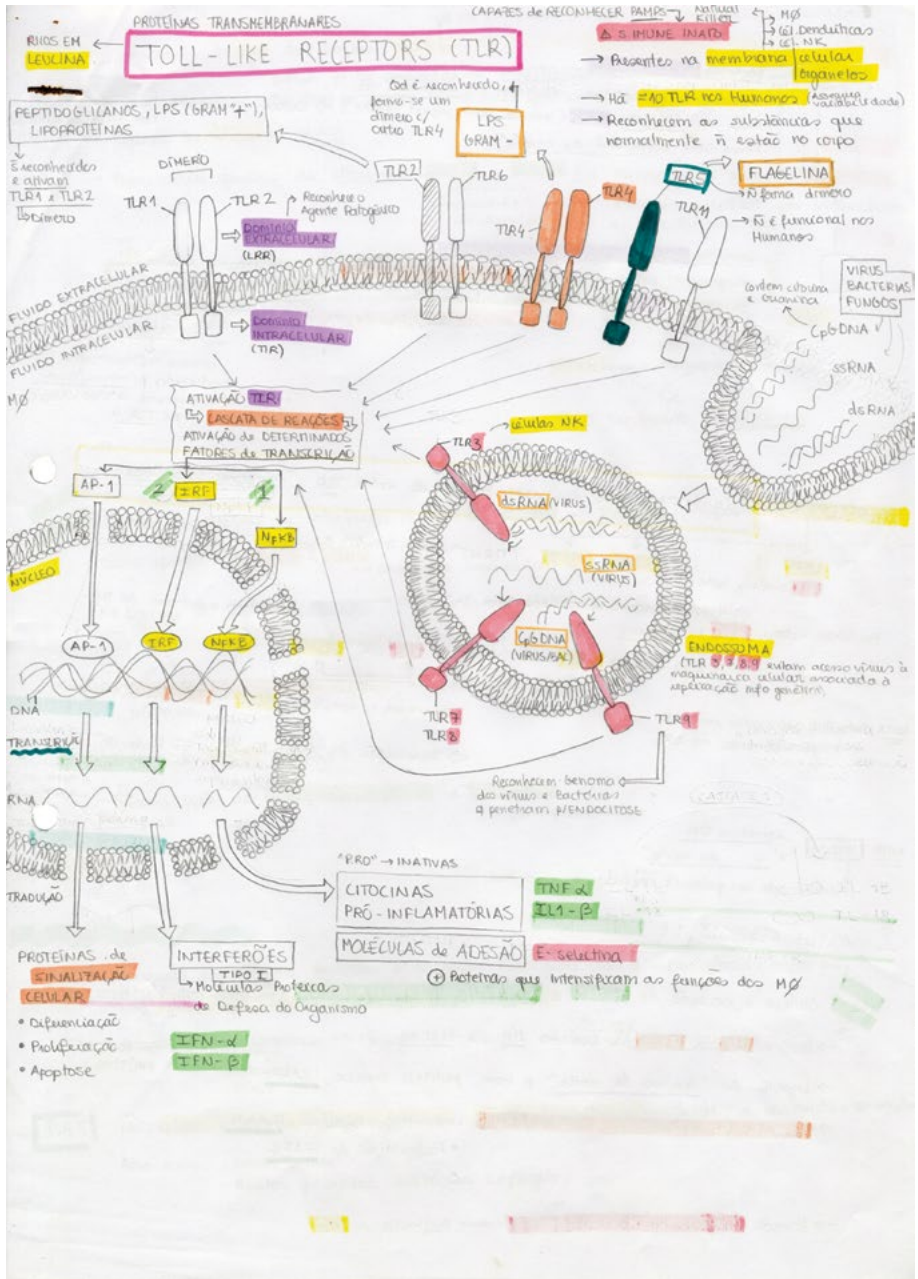 PROTEÍNAS TRANSMEMBRANARES
TOLL-LIKE RECEPTORS (TLR)
RICOS EM
LEUCINA
CAPAZES de RECONHECER PAMPS
Natural
Killer
△ S. IMUNE INATO
MØ
Cél. Dendríticas
Cél. NK
→ Presentes na membrana celular
organelos
→ Há ≈10 TLR nos Humanos (assegura
variabilidade)
→ Reconhecem as substâncias que
normalmente ñ estão no corpo
PEPTIDOGLICANOS, LPS (GRAM "+"),
LIPOPROTEÍNAS
reconhecidos
e ativam
TLR1 e TLR2
Dímero
DÍMERO
TLR1
TLR2
Reconhece o
Agente Patogénico
Domínio
EXTRACELULAR
(LRR)
Domínio
INTRACELULAR
(TIR)
Qd é reconhecido,
forma-se um
dímero c/
outro TLR4
LPS
GRAM -
TLR2
TLR6
TLR4
TLR4
TLR5
FLAGELINA
Ñ forma dímero
TLR11
Ñ é funcional nos
Humanos
FLUIDO EXTRACELULAR
FLUIDO INTRACELULAR
MØ
VIRUS
BACTERIAS
FUNGOS
contem citosina
e Guanina
CpGDNA
ssRNA
dsRNA
ATIVAÇÃO TLR
CASCATA DE REAÇÕES
ATIVAÇÃO DE DETERMINADOS
FATORES de TRANSCRIÇÃO
AP-1
2
IRF
1
NFKB
NÚCLEO
AP-1
IRF
NFKB
DNA
TRANSCRIÇÃO
RNA
TRADUÇÃO
TLR3
células NK
dsRNA (VIRUS)
ssRNA
(VIRUS)
CpGDNA
(VIRUS/BAC)
TLR7
TLR8
TLR9
ENDOSSOMA
(TLR 3,7,8,9 evitam acesso vírus à
maquinaria celular associada à
replicação info genética)
Reconhecem Genoma
dos vírus e Bactérias
q penetram p/ENDOCITOSE
"PRO" → INATIVAS
CITOCINAS
PRÓ-INFLAMATÓRIAS
TNF α
IL1-β
MOLÉCULAS de ADESÃO
E-selectina
⊕ Proteínas que intensificam as funções dos MØ
PROTEÍNAS de
SINALIZAÇÃO
CELULAR
• Diferenciação
• Proliferação
• Apoptose
INTERFERÕES
TIPO I
Moléculas Proteicas
de Defesa do Organismo
IFN-α
IFN-β